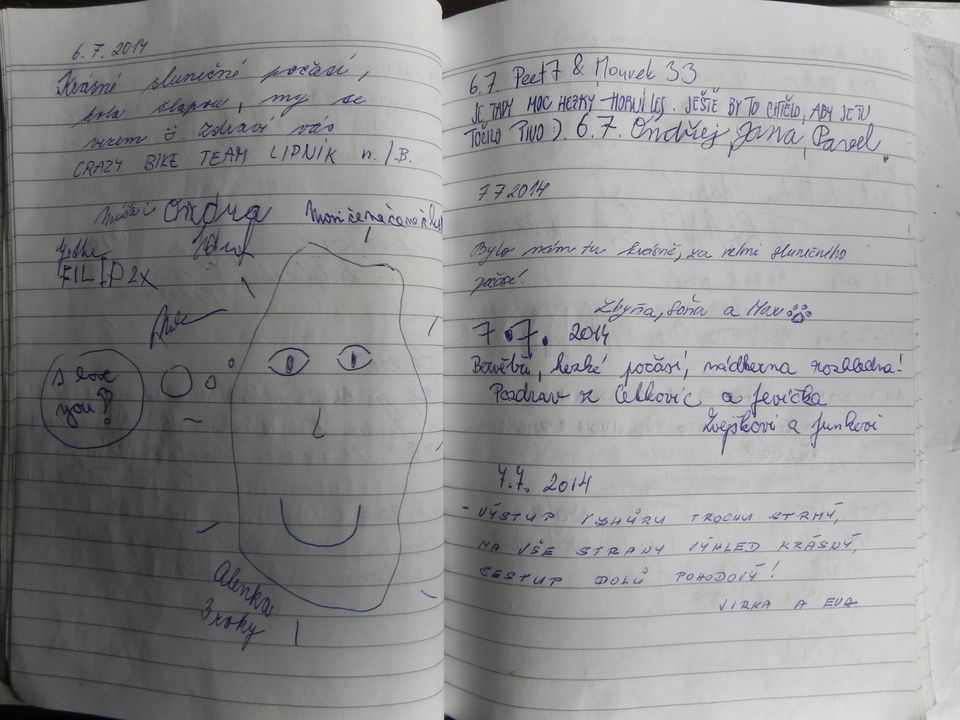 6.7.2014
Krásné slunečné počasí,
kola šlapou, my se
vezem č. Zdraví vás
CRAZY BIKE TEAM LIPNÍK n./B.
Ondra
FILIP 2x
I love
you?
Alenka
3 roky
6.7. Peet7 & Mourek 33
JE TADY MOC HEZKY - HORNÍ LES. JEŠTĚ BY TO CHTĚLO, ABY SE TU
TOČILO PIVO :) 6.7. Ondřej, Jana, Pavel.
7.7.2014
Bylo nám tu krásně, za velmi slunečného
počasí!
Zbyňa, Soňa a Max
7.7. 2014
Bezvětří, hezké počasí, nádherna rozhledna!
Pozdrav z Letkovic a Jevíčka
a Junkovi
7.7. 2014
- VÝSTUP VZHŮRU TROCHU STRMÝ,
NA VŠE STRANY VÝHLED KRÁSNÝ,
SESTUP DOLŮ POHODOVÝ!
JIRKA A EVA